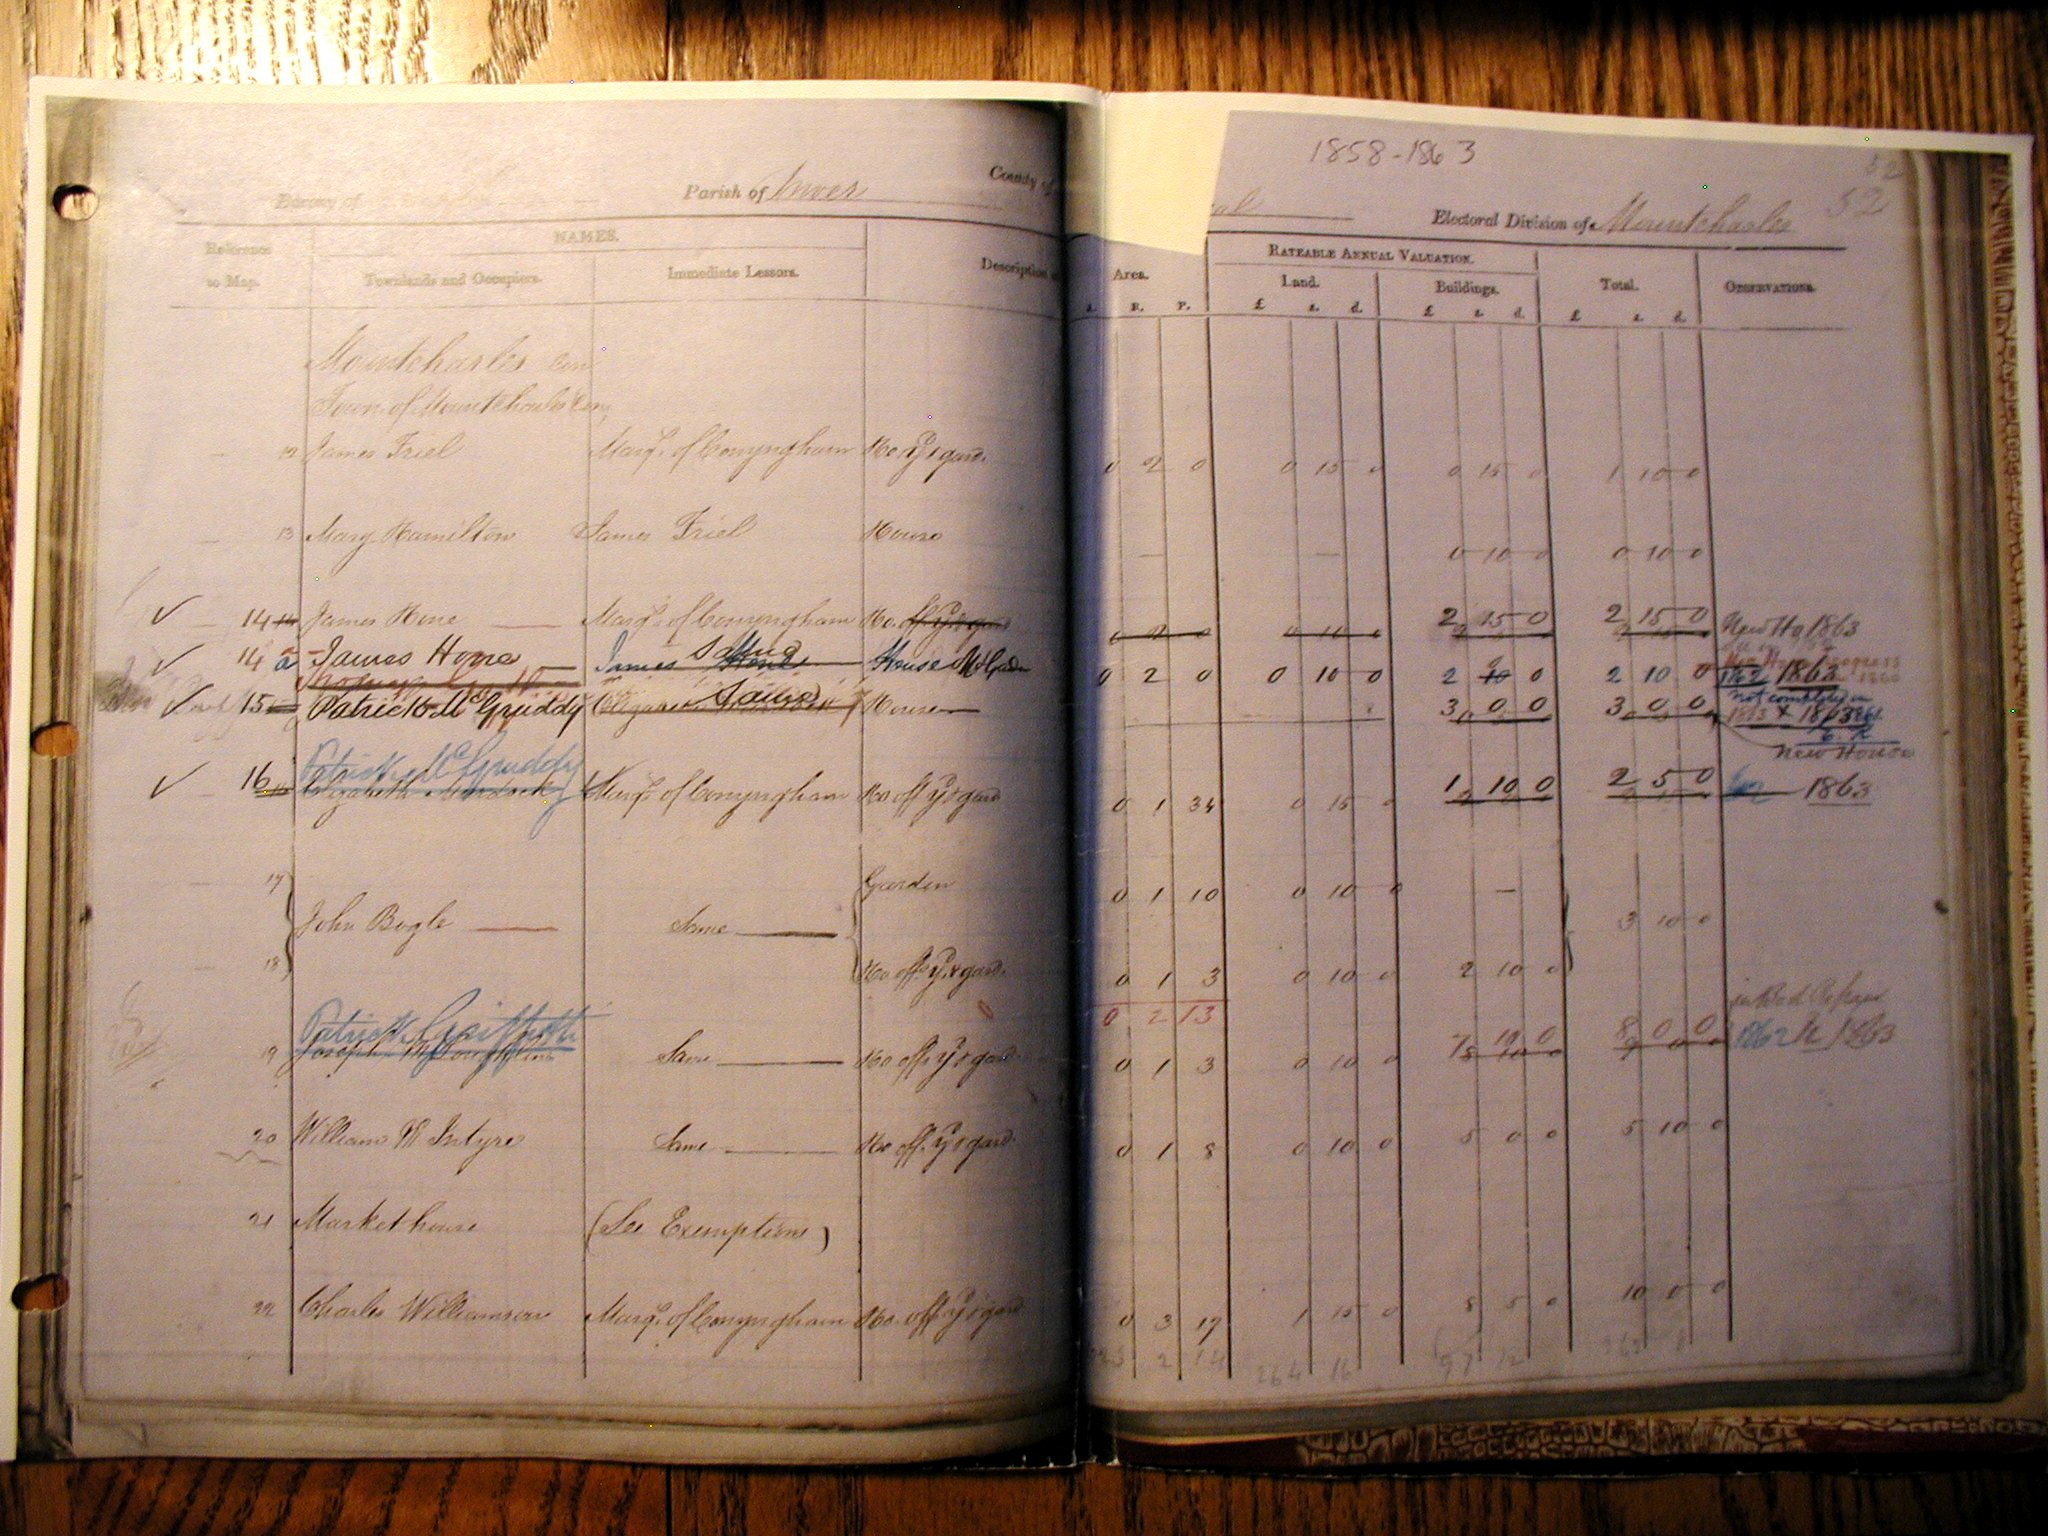 1858-1863
52
Parish of Inver
County of
Electoral Division of Mountcharles
52
Reference to Map.
NAMES.
Townlands and Occupiers.
Immediate Lessors.
Description
Area.
R. P.
RATEABLE ANNUAL VALUATION.
Land.
£ s. d.
Buildings.
£ s. d.
Total.
£ s. d.
OBSERVATIONS.
Mountcharles con
Town of Mountcharles con
12 James Friel Marq. of Conyngham Ho. yd & gard. 0 2 0 0 15 0 0 15 0 1 10 0
13 Mary Hamilton James Friel House — — 0 10 0 0 10 0
14 James Hone Marq. of Conyngham Ho. off yd & gard 0 2 0 0 10 0 2 15 0 2 15 0 New Ho 1863
14 a James Hone James Hone Same House & Garden 0 2 0 0 10 0 2 0 2 10 0 1862 1863
15 Patrick McGruddy Same House 3 0 0 3 0 0 not complete in
1863
New House
Patrick McGruddy
16 Elizabeth Marq. of Conyngham Ho. off yd & gard 0 1 34 0 15 0 1 10 0 2 5 0 1863
17 Garden 0 1 10 0 10 0 —
John Bogle Same 3 10 0
18 Ho. off. yd & gard. 0 1 3 0 10 0 2 10 0
0 2 13
Patrick Griffith in Bad Repair
19 Joseph Same Ho. off. yd & gard. 0 1 3 0 10 0 7 10 0 8 0 0 1862 1863
20 William McIntyre Same Ho. off. yd & gard. 0 1 8 0 10 0 5 0 0 5 10 0
21 Market house (See Exemptions)
22 Charles Williamson Marq. of Conyngham Ho. off. yd & gard 0 3 17 1 15 0 8 5 0 10 0 0
2 14 264 16 97 12